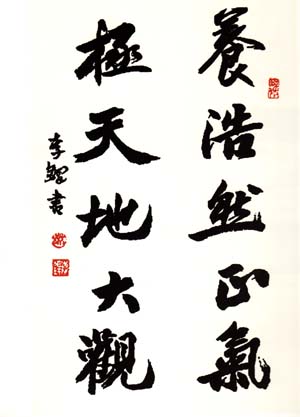 養浩然正氣
極天地大觀
李鱓書